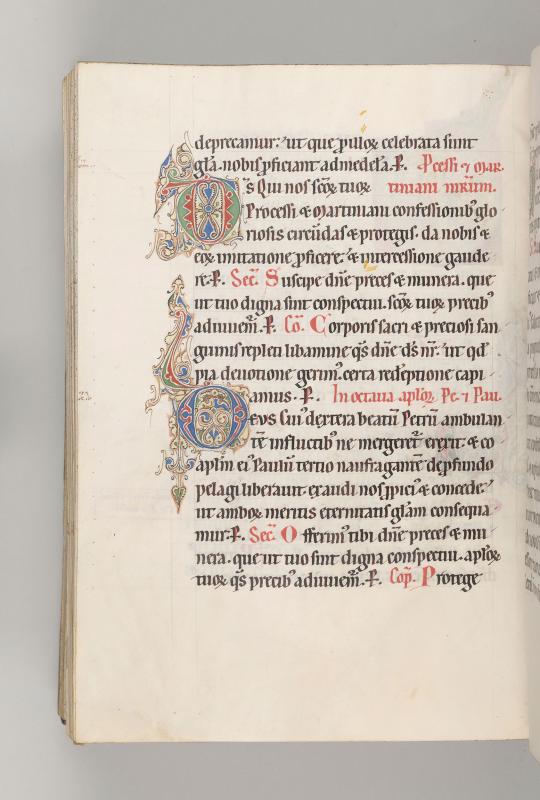 deprecamur: ut que p illoꝝ celebrata sunt
gl̃a. nobis ꝓficiant ad medelã. P̃. Pcessi ⁊ mar-
D s̃ Qui nos sc̃oꝝ tuoꝝ tiniani mr̃um.
Processi & Martiniani confessionibꝰ glo
riosis circũdas & protegis. da nobis &
eoꝝ imitatione ꝓficere. & intercessione gaude
re. P̃. Sec̃. Suscipe dñe preces & munera. que
ut tuo digna sint conspectui. sc̃oꝝ tuoꝝ precibꝰ
adiuuem̃. P̃. Co. Corporis sacri & preciosi san
guinis repleti libamine q̃s dñe d̃s nr̃. ut qd̃
pia deuotione gerimꝰ. certa redẽptione capi
amus. P̃. In octaua apl̃oꝝ Pe. ⁊ Pau.
Deus cuiꝰ dextera beatũ Petrũ ambulan
tẽ in fluctibꝰ ne mergeret̃ erexit & co
apl̃m eiꝰ Paulũ tertio naufragantẽ de ꝓfundo
pelagi liberauit exaudi nos ꝓpiciꝰ & concede.
ut amboꝝ meritis eternitatis gl̃am consequa
mur. P̃. Sec̃. Offerimꝰ tibi dñe preces & mu
nera. que ut tuo sint digna conspectui. apl̃oꝝ
tuoꝝ q̃s precibꝰ adiuuem̃. P̃. Cop̃. Protege